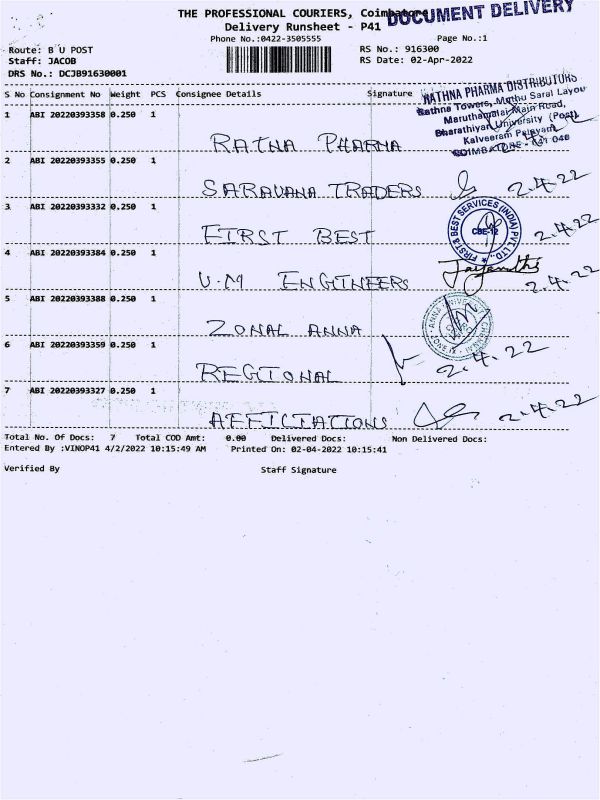 THE PROFESSIONAL COURIERS, Coimbatore
DOCUMENT DELIVERY
Delivery Runsheet - P41
Phone No.:0422-3505555
Page No.:1
Route: B U POST
RS No.: 916300
Staff: JACOB
RS Date: 02-Apr-2022
DRS No.: DCJB91630001
S No Consignment No Weight PCS Consignee Details Signature
RATHNA PHARMA DISTRIBUTORS
Rathna Towers, Muthu Saral Layou
Maruthamalai Main Road,
Bharathiyar University (Post)
Kalveeram Palayam,
COIMBATORE - 641 046
1 ABI 20220393358 0.250 1
RATNA PHARMA 2.4.22
2 ABI 20220393355 0.250 1
SARAVANA TRADERS 2.4.22
3 ABI 20220393332 0.250 1
FIRST & BEST SERVICES (INDIA) PVT. LTD.
CBE-12
FIRST BEST 2.4.22
4 ABI 20220393384 0.250 1
U.M ENGINEERS 2.4.22
5 ABI 20220393388 0.250 1
ZONAL ANNA
6 ABI 20220393359 0.250 1
REGIONAL 2.4.22
7 ABI 20220393327 0.250 1
AFFILIATIONS 2.4.22
Total No. Of Docs: 7 Total COD Amt: 0.00 Delivered Docs: Non Delivered Docs:
Entered By :VINOP41 4/2/2022 10:15:49 AM Printed On: 02-04-2022 10:15:41
Verified By Staff Signature